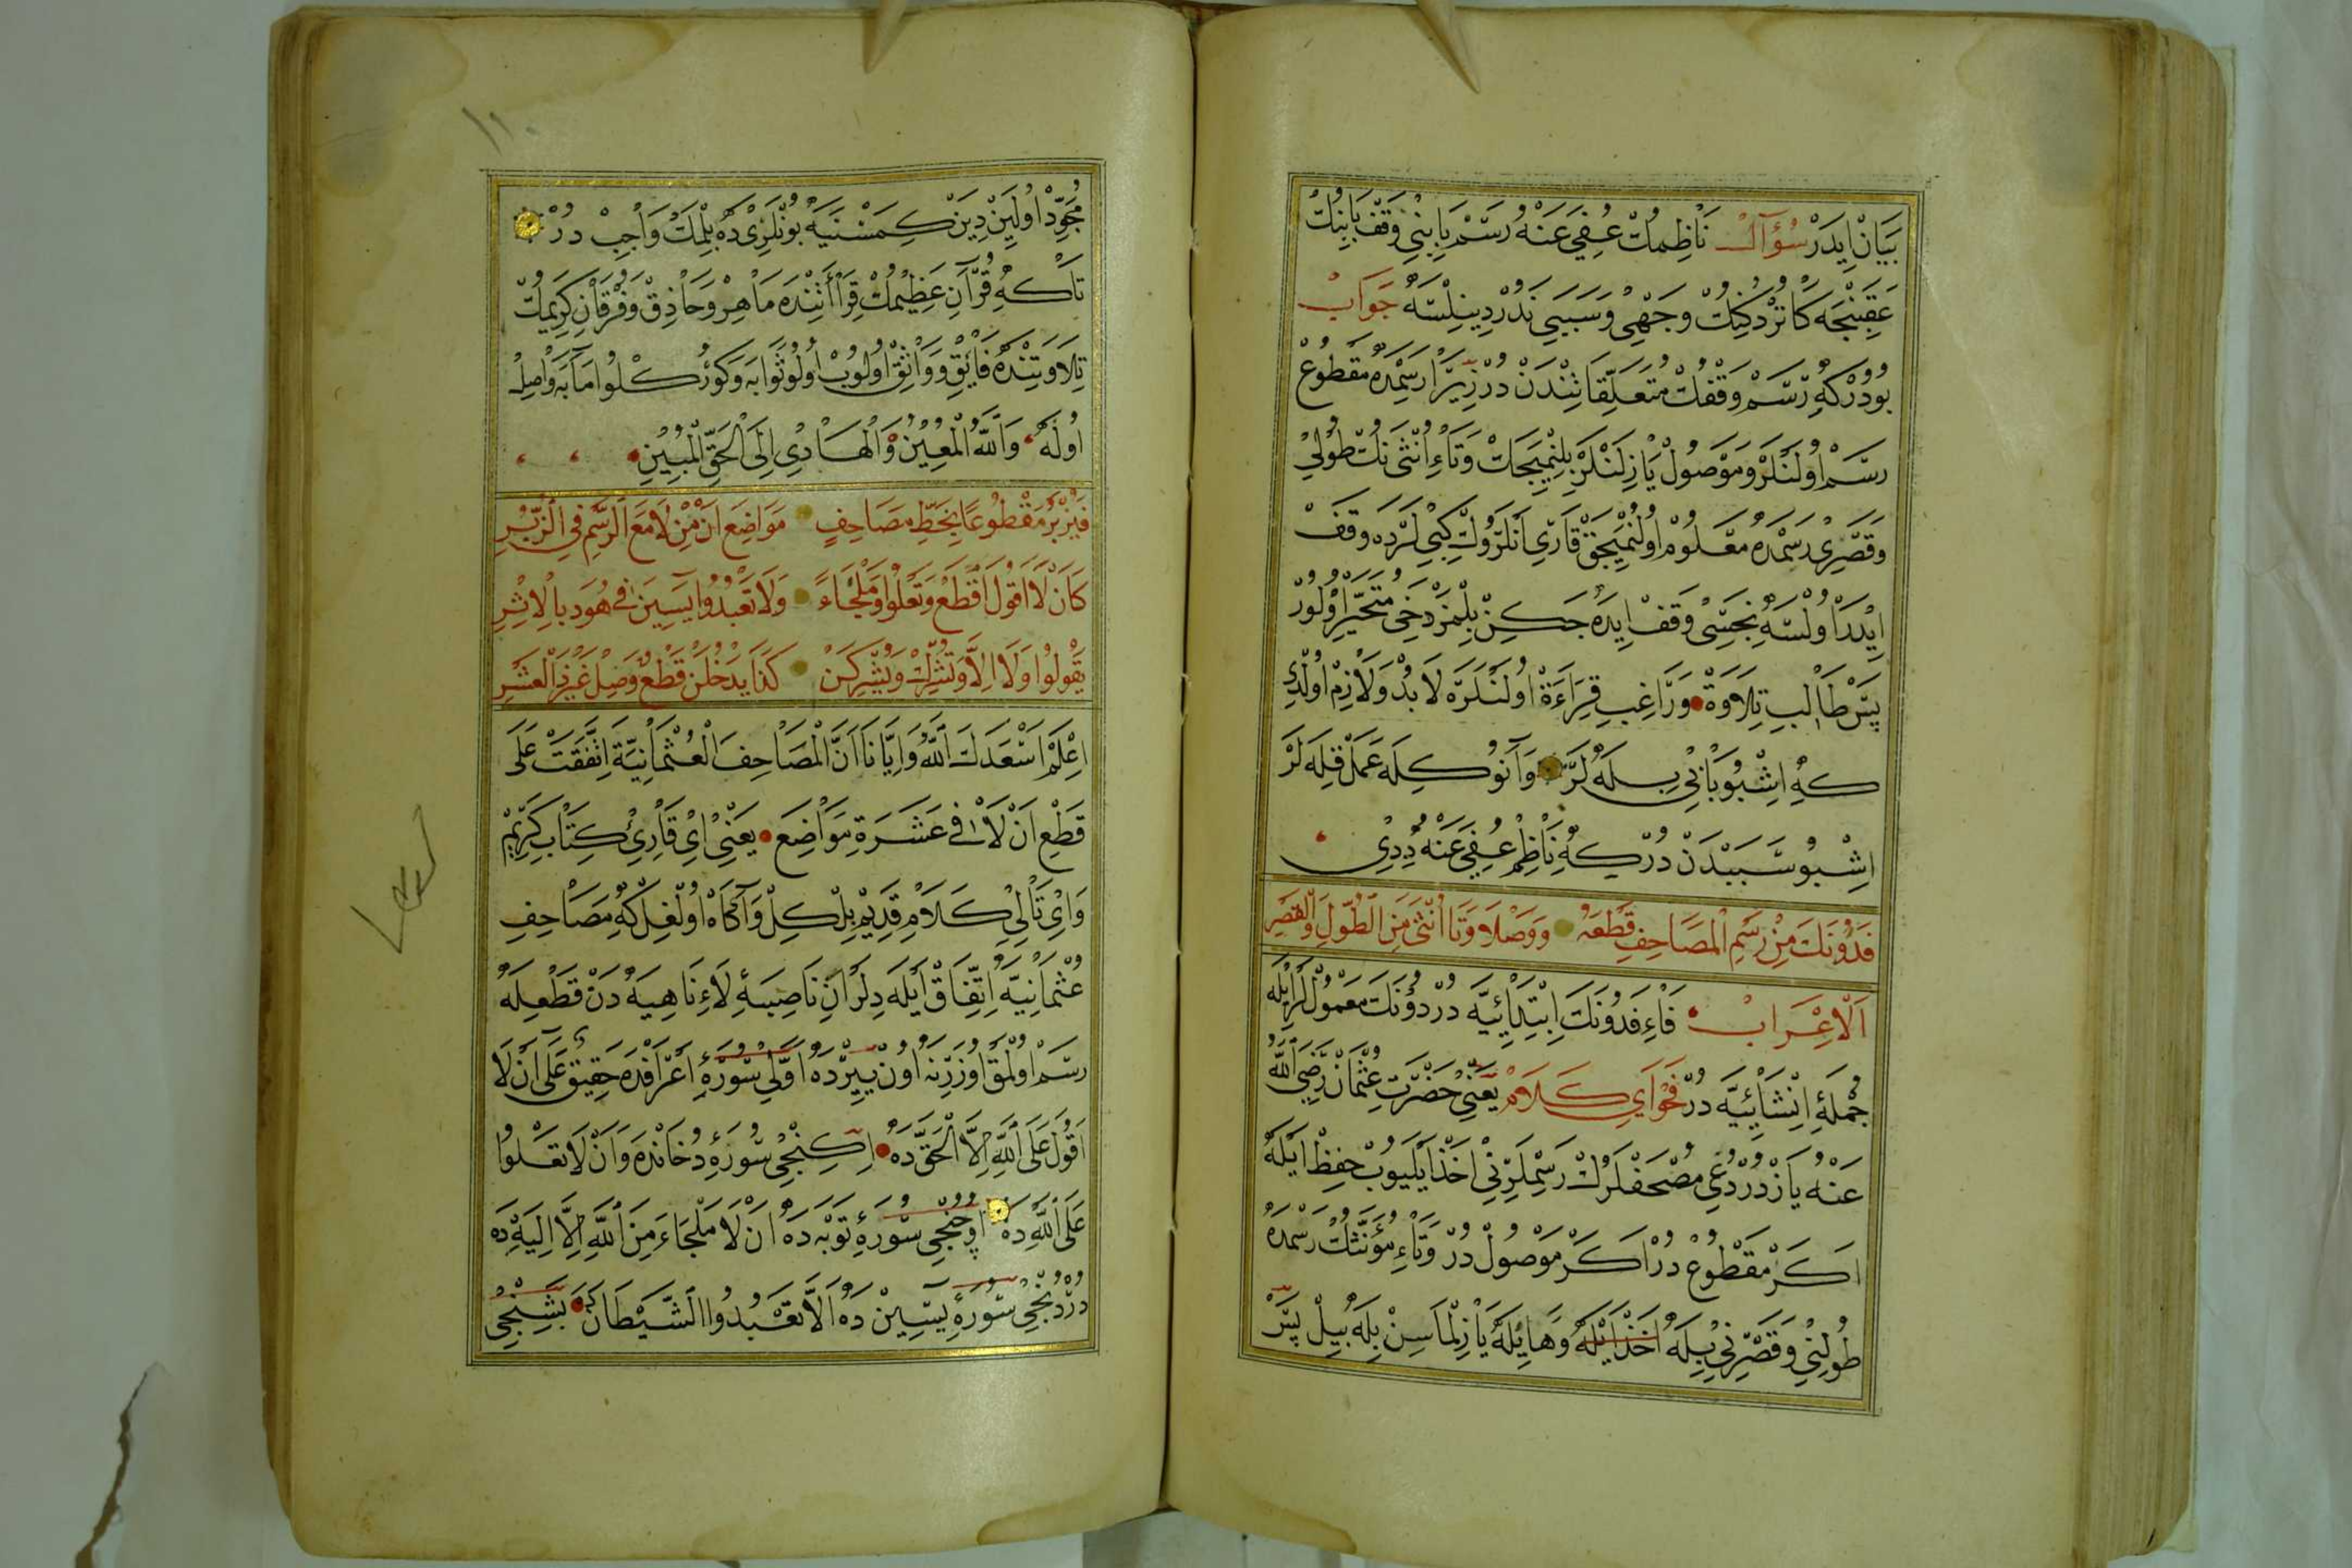 بَيَانْ اِيدَرْ سُؤَالْ نَاظِمُكْ عُفِيَ عَنْهُ رَسْم بَابِنِي وَقْف بَابِنُكْ
عَقِبِنْجَه كَتُرْدُكِنُكْ وَجْهِي وَسَبَبِي نَدُرْ دِينِلِسَه جَوَابْ
بُودُرْكِه رَسْم وَقْفُكْ مُتَعَلِّقَاتِنْدَنْ دُرْ زِيرَا رَسِمْدَه مَقْطُوعْ
رَسْم اُولَنَنْلَرْ وَمَوْصُولْ يَازِلَنْلَرْ بِلِنْمِيِيجَكْ وَتَاءِ اُنْثٰى نُكْ طُولِي
وَقَصْرِي رَسِمْدَه مَعْلُومْ اُولْنْمِيِيجَقْ قَارِي اَنْلَرُكْ كِبِي لَرْدَه وَقْفْ
اِيدَرْ اُولْسَه نِجَسِي وَقْفْ اِيدَه جَكِنْ بِلْمَزْ دَخِي مُتَحَيِّرْ اُولُورْ
پَسْ طَالِبِ تِلَاوَةْ وَرَاغِبِ قِرَاءَةْ اُولَنْلَرَه لَا بُدْ وَلَازِمْ اُولْدِي
كِه اِشْبُو بَابِي بِيلَه لَرْ وَآنُوكِلَه عَمَلْ قِلَه لَرْ
اِشْبُو سَبَبْدَنْ دُرْكِه نَاظِمْ عُفِيَ عَنْهُ دِدِي
فَدُونَكَ مِنْ رَسْمِ الْمَصَاحِفِ قَطْعَهُ وَوَصْلًا وَتَا اُنْثٰى مِنَ الطُّولِ وَالْقَصْرِ
اَلْاِعْرَابْ فَاءِ فَدُونَكَ اِبْتِدَائِيَّه دُرْ دُونَكَ مَعْمُولْلَرِيلَه
جُمْلَۀِ اِنْشَائِيَّه دُرْ فَحْوَايِ كَلَامْ يَعْنِي حَضْرَتِ عُثْمَانْ رَضِيَ اللّٰهُ
عَنْهُ يَازْدُرْدُغِي مُصْحَفْلَرُكْ رَسِمْلَرِنِي اَخْذْ اَيْلَيُوبْ حِفِظْ اَيْلَه
اَكَرْ مَقْطُوعْ دُرْ اَكَرْ مَوْصُولْ دُرْ وَتَاءِ مُؤَنَّثُكْ رَسِمْدَه
طُولِنِي وَقَصْرِنِي بِيلَه اَخْذْ اَيْلَه وَهَا يِلَه يَازِلْمَاسِنْ بِلَه بِيلْ پَسْ
١١٠
مُجَوِّدْ اُولَيِنْ دِيَنْ كِمَسْنَيَه بُونْلَرِي دَه بِلْمَكْ وَاجِبْ دُرْ
تَاكِه قُرْآنِ عَظِيمُكْ قِرَاأَتِنْدَه مَاهِرْ وَحَاذِقْ وَفُرْقَانِ كَرِيمُكْ
تِلَاوَتِنْدَه فَائِقْ وَوَاثِقْ اُولُوبْ اُولُو ثَوَابَه وَكُورُكْلُو مَآبَه وَاصِلْ
اُولَه وَاللّٰهُ الْمُعِينُ وَالْهَادِي اِلَى الْحَقِّ الْمُبِينِ
فَيُزْبَرُ مَقْطُوعًا بِخَطِّ مَصَاحِفٍ مَوَاضِعَ اَنْ مِنْ لَا مَعَ الرَّسْمِ فِي الزُّبُرِ
كَاَنْ لَا اَقُولَ اقْطَعْ وَتَعْلُوا وَمَلْجَاءَ وَلَا تَعْبُدُوا يٰسِينَ فِي هُودَ بِالْاِثْرِ
يَقُولُوا وَلَا اِلَّا وَتُشْرِكْ وَيُشْرِكْنَ كَذَا يَدْخُلَنْ قَطْعٌ وَصِلْ غَيْرَ ذَا الْعَشْرِ
اِعْلَمْ اَسْعَدَكَ اللّٰهُ وَاِيَّانَا اَنَّ الْمَصَاحِفَ الْعُثْمَانِيَّةَ اِتَّفَقَتْ عَلَى
قَطْعِ اَنْ لَا فِي عَشَرَةِ مَوَاضِعَ يَعْنِي اِي قَارِئِ كِتَابِ كَرِيمْ
وَاِي تَالِيِ كَلَامِ قَدِيمْ بِلْكِلْ وَآكَاهْ اُولْغِلْ كِه مَصَاحِفِ
عُثْمَانِيَّه اِتِّفَاقْ اَيْلَه دِلَرْ اَنِ نَاصِبَۀِ لَاءِ نَاهِيَه دَنْ قَطْعِلَه
رَسْم اُولْمَقْ اُوزَرِنَه اُونْ يِيرْدَه اَوَّلِي سُورَۀِ اَعْرَافْدَه حَقِيقٌ عَلٰى اَنْ لَا
اَقُولَ عَلَى اللّٰهِ اِلَّا الْحَقَّ دَه اِكِنْجِي سُورَۀِ دُخَانْدَه وَاَنْ لَا تَعْلُوا
عَلَى اللّٰهِ دَه اُوچُنْجِي سُورَۀِ تَوْبَه دَه اَنْ لَا مَلْجَاءَ مِنَ اللّٰهِ اِلَّا اِلَيْهِ دَه
دُرْدُنْجِي سُورَۀِ يٰسِينْ دَه اَلَّا تَعْبُدُوا الشَّيْطَانَ دَه بَشِنْجِي